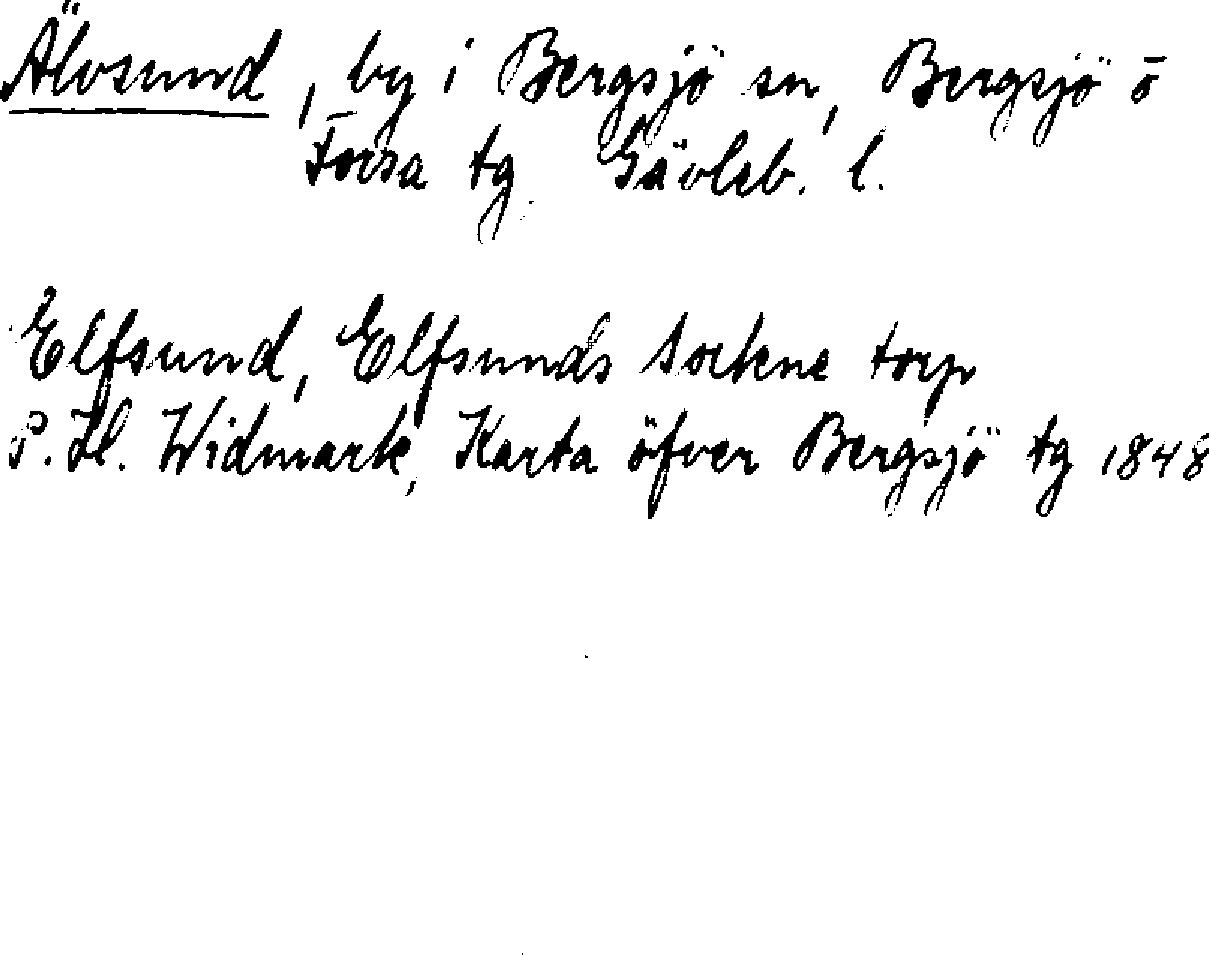 Älvsund, by i Bergsjö sn, Bergsjö o
Forsa tg. Gävleb. l.
Elfsund, Elfsunds sockne torp
P. H. Widmark, Karta öfver Bergsjö tg 1848